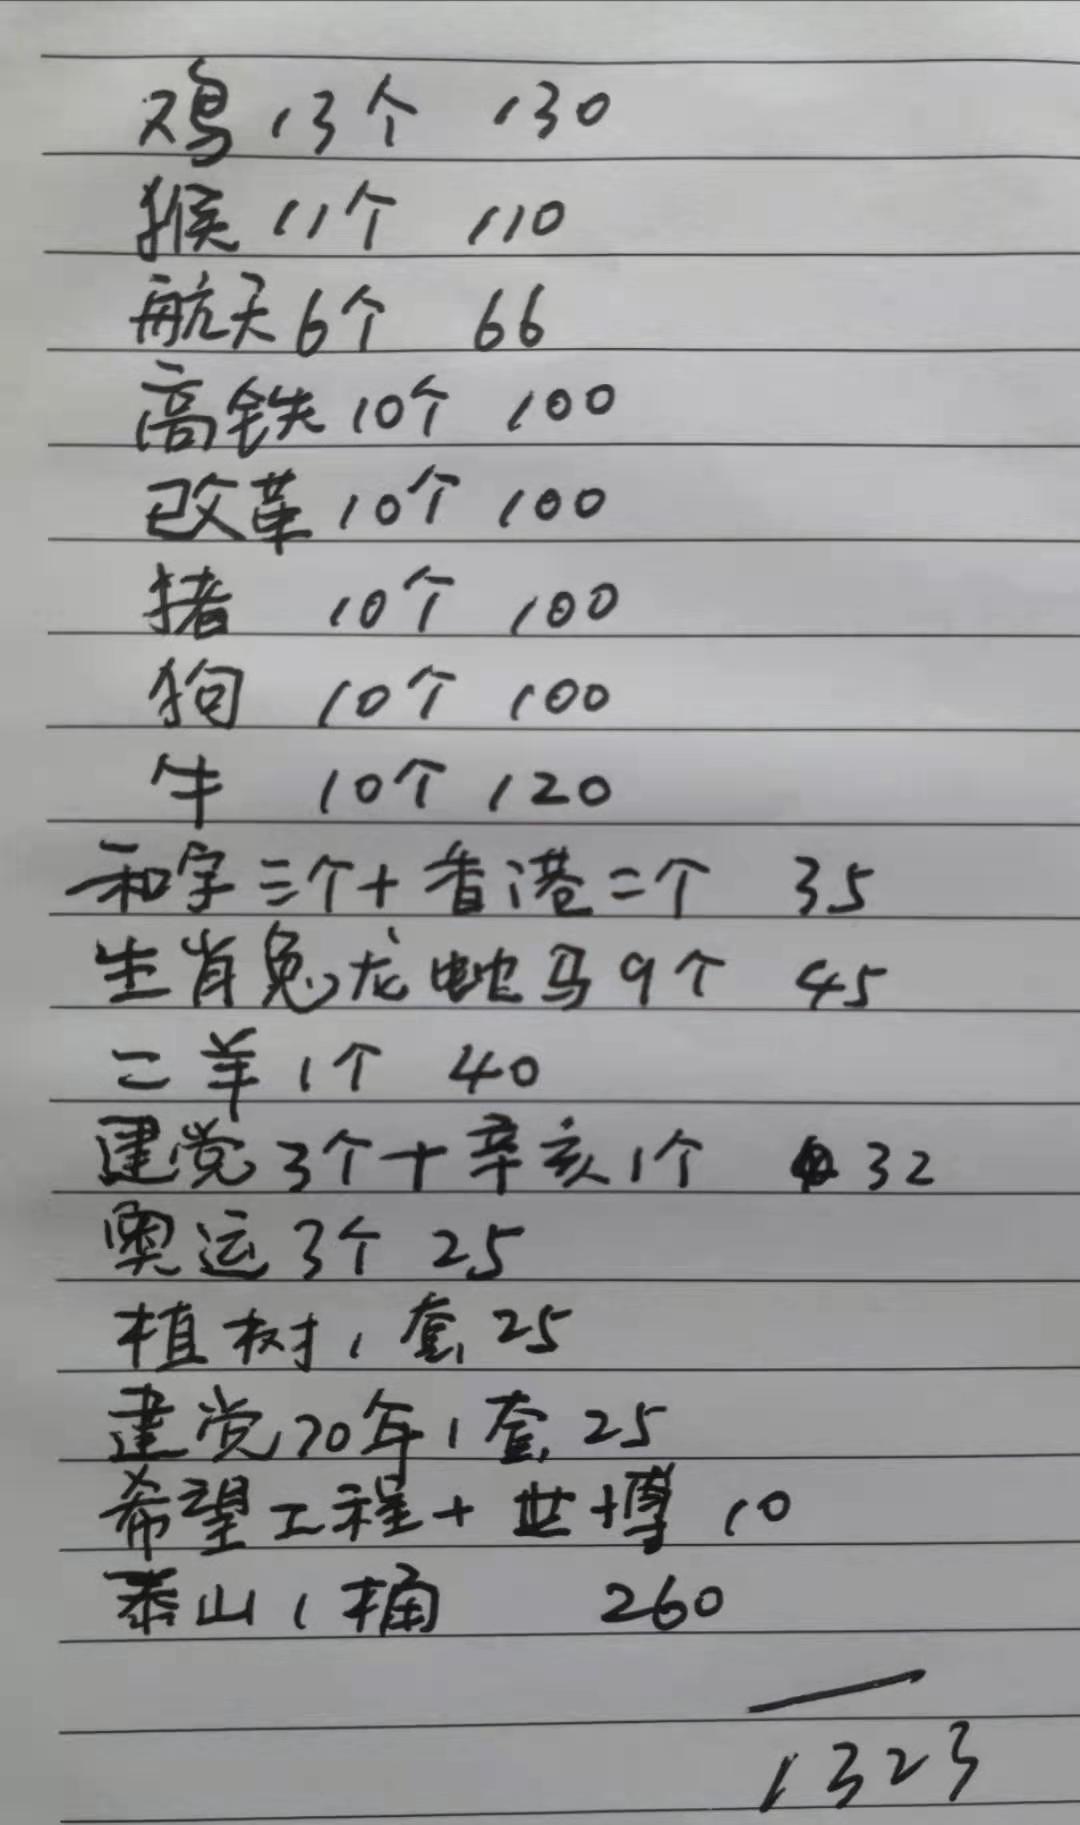 鸡13个 130
猴11个 110
航天6个 66
高铁10个 100
改革10个 100
猪 10个 100
狗 10个 100
牛 10个 120
和字三个+香港二个 35
生肖兔龙蛇马9个 45
二羊1个 40
建党3个+辛亥1个 32
奥运3个 25
植树1套 25
建党70年1套 25
希望工程+世博 10
泰山1桶 260
1323